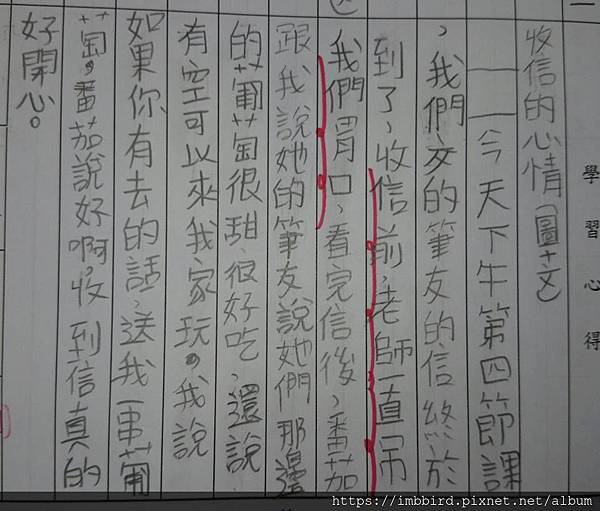 學習心得
收信的心情(圖+文)
今天下午第四節課
,我們交的筆友的信終於
到了,收信前,老師一直吊
我們胃口,看完信後,番茄
跟我說她的筆友說她們那邊
的葡萄很甜、很好吃,還說
有空可以來我家玩。我說
如果你有去的話,送我一串葡
萄。番茄說好啊,收到信真的
好開心。
https://imbbird.pixnet.net/album